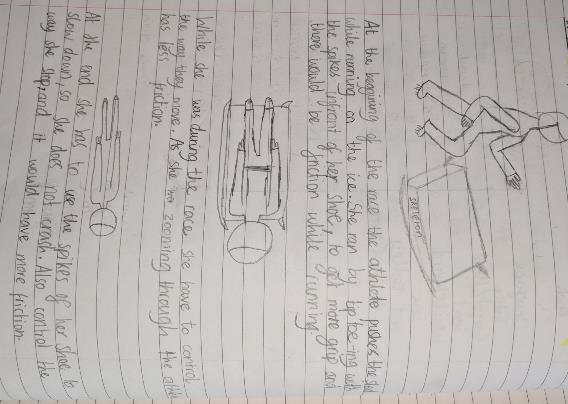 SKELETON
At the beginning of the race the athlete pushes the sled
while running on the ice. She ran by tip toe-ing with
the spikes infront of her shoe, to get more grip and
there would be friction while running.
While she was during the race she have to control
the way they move. As she zooming through the
has less friction.
At the end she has to use the spikes of her shoe to
slow down, so she does not crash. Also control the
way she stop, and it would have more friction.